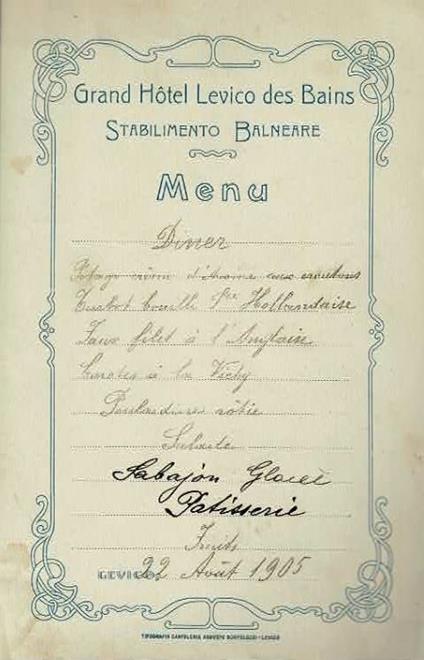 Grand Hôtel Levico des Bains
STABILIMENTO BALNEARE
Menu
Diner
Potage crème d'Avoine aux croutons
Turbot bouilli Sce Hollandaise
Faux filet à l'Anglaise
Carotes à la Vichy
rôtie
Salade
Sabajon Glacée
Patisserie
Fruits
LEVICO, 22 Août 1905